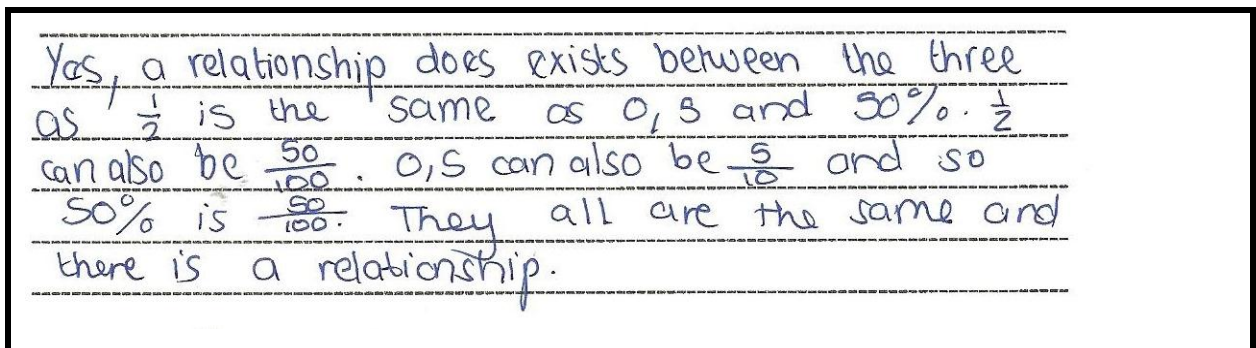 Yes, a relationship does exists between the three
as 1/2 is the same as 0,5 and 50%. 1/2
can also be 50/100. 0,5 can also be 5/10 and so
50% is 50/100. They all are the same and
there is a relationship.